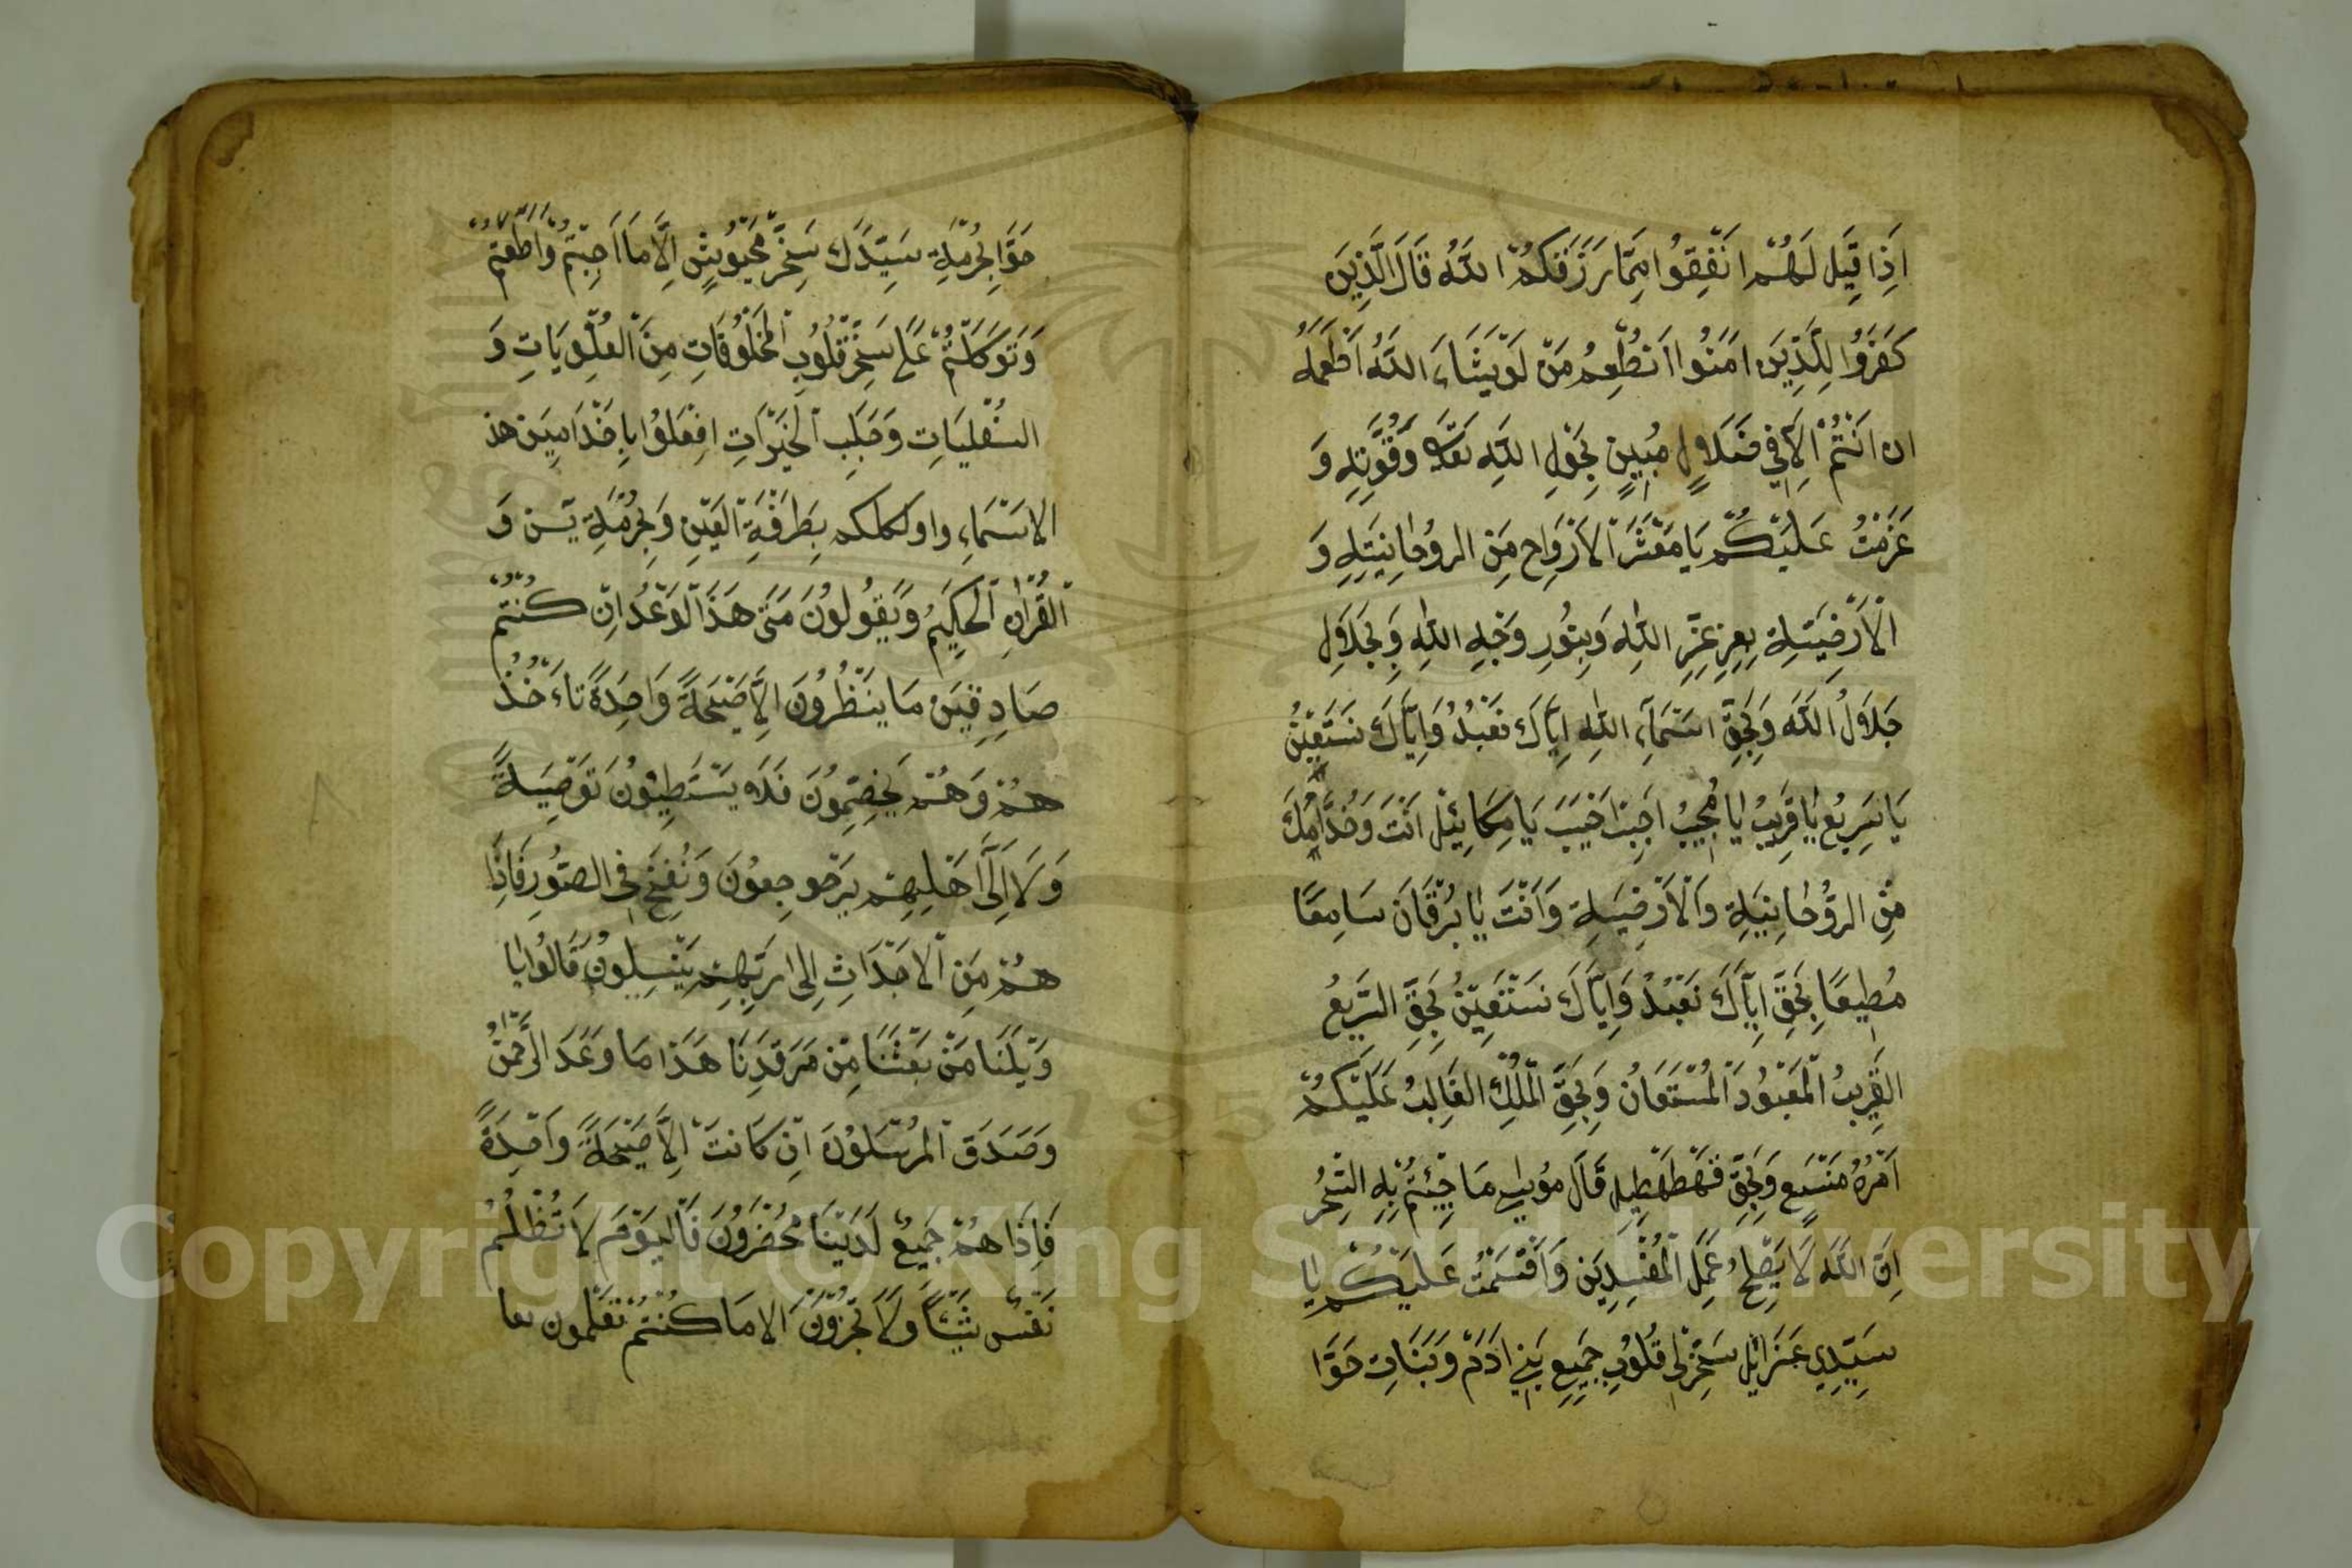 اَذِا قِيْلَ لَهُمْ اَنْفِقُوا مِمَّا رَزَقَكُمْ اللّٰهُ قَالَ الَّذِيْنَ
كَفَرُوا لِلَّذِيْنَ امَنُوا اَنُطْعِمُ مَنْ لَوْ يَشَاءَ اللّٰهُ اَطْعَمَهُ
ان اَنْتُمْ اِلَّا فِي ضَلَاٍل مُبِيْنٍ بِحَوْلِ اللّٰهِ تعَالَى وَقُوَّتِهِ وَ
عَزَمْتُ عَلَيْكُمْ يَا مَعْشَرَ الْاَرْوَاحِ مِنَ الروُحَانِيَّتِهِ وَ
الْاَرْضِيَّةِ بِعِزِ عِزِّ اللّٰهِ وَبِنُورِ وَجْهِ اللّٰهِ وَبِجَلَاَلِ
جَلَاَلُ اللّٰهَ وَبِحَقِّ اسْمَآءِ اللّٰهِ اِيَّاكَ نَعْبُدُ وَاِيَّاكَ نَسْتَعِيْنُ
يَا سَرِيْعُ يَا قَرِيْبُ يَا مُجِيْبُ اَجِبْ يَا مِكَائِيْلُ اَنْتَ وَخُدَّامُكَ
مِنَ الروُّحَانِيَةِ وَالْاَرْضِيَةِ وَاَنْتَ يَا بُرْقَانَ سَامِعًا
مُطِيعًا بِحَقِّ اِيَّاكَ نَعْبُدُ وَاِيَّاكَ نَسْتَعِيْنُ بِحَقِّ السَّرِيعُ
القَرِيبُ الْمَعْبُودَ الْمُسْتَعَانُ وَبِحَقِّ الْمَلِكُ الغَالِبُ عَلَيْكُمْ
اَمْرُهُ وَبِحَقِّ قَالَ مُوسٰى مَا جِئْتُمْ بِهِ السِّحْرُ
اِنَّ اللّٰهَ لَا يُصْلِحُ عَمَلَ الْمُفْسِدِيَن وَاَقْسَمْتُ عَلَيْكُمْ يَا
سَيِّدِي عَزَرَائيْلُ سَخِّرْ لِى قُلُوُبِ جَمِيعِ بَنِي اٰدَمَ وَبَنَاتِ حَوَّا
حَوَّا بِحُرْمَةِ سَيِّدَكَ اِلَّا مَا اَجَبْتُمْ وَاَطَعْتُمْ
وَتَوَكَّلْتُمْ عَلَى سَخِّرْ قُلُوبِ الْمَخْلُوقَاتِ مِنَ الْعُلْوِيَاتِ وَ
السُفْلِيَاتِ وَجَلْبِ الْخَيْرَاتِ افْعَلُوُا يَا خُدَّامِيْنَ هذ
الاسْمَاءِ بِطَرْفَةِ الْعَيْنِ وَبِحُرْمَةِ يَسٓن وَ
الْقُرْاٰنِ الْحَكِيْمُ وَيَقُولُونَ مَتَى هَذَا الْوَعْدُ اِنْ كُنْتُمْ
صَادِقِيْنَ مَا يَنْظُرُونَ اِلَّا صَيْحَةً وَاحِدَةً تَاءْخُذُ
هُمْ وَهُمْ يَخِصِّمُونَ فَلَا يَسْتَطِيْعُونَ تَوْصِيَةً
وَلَا اِلَى اَهْلِهِمْ يَرْجو جِعوُنَ وَنُفِخَ فِي الصُّورِ فَاِذَا
هُمْ مِنَ الْاَجْدَاثِ اِلى رَبِّهِمْ يَنْسِلُونَ قَالُوا يَا
وَيْلَنَا مَنْ بَعَثَنَا مِنْ مَرْقَدِنَا هَذَا مَا وَعَدَ الرَّحْمٰنُ
وَصَدَقَ الْمُرْسَلُونَ اِنْ كَانَتْ اِلَّا صَيْحَةً وَاحِدَةً
فَاِذَا هُمْ جَمِيْعٌ لَدَيْنَا مُحْضَرُونَ فَالْيَوْمَ لَا تُظْلَمُ
نَفْسٌ شَيْئًا وَلَا تُجْزَوْنَ اِلا مَا كُنْتُمْ تَعْلَمون
Copyright © King Saud University